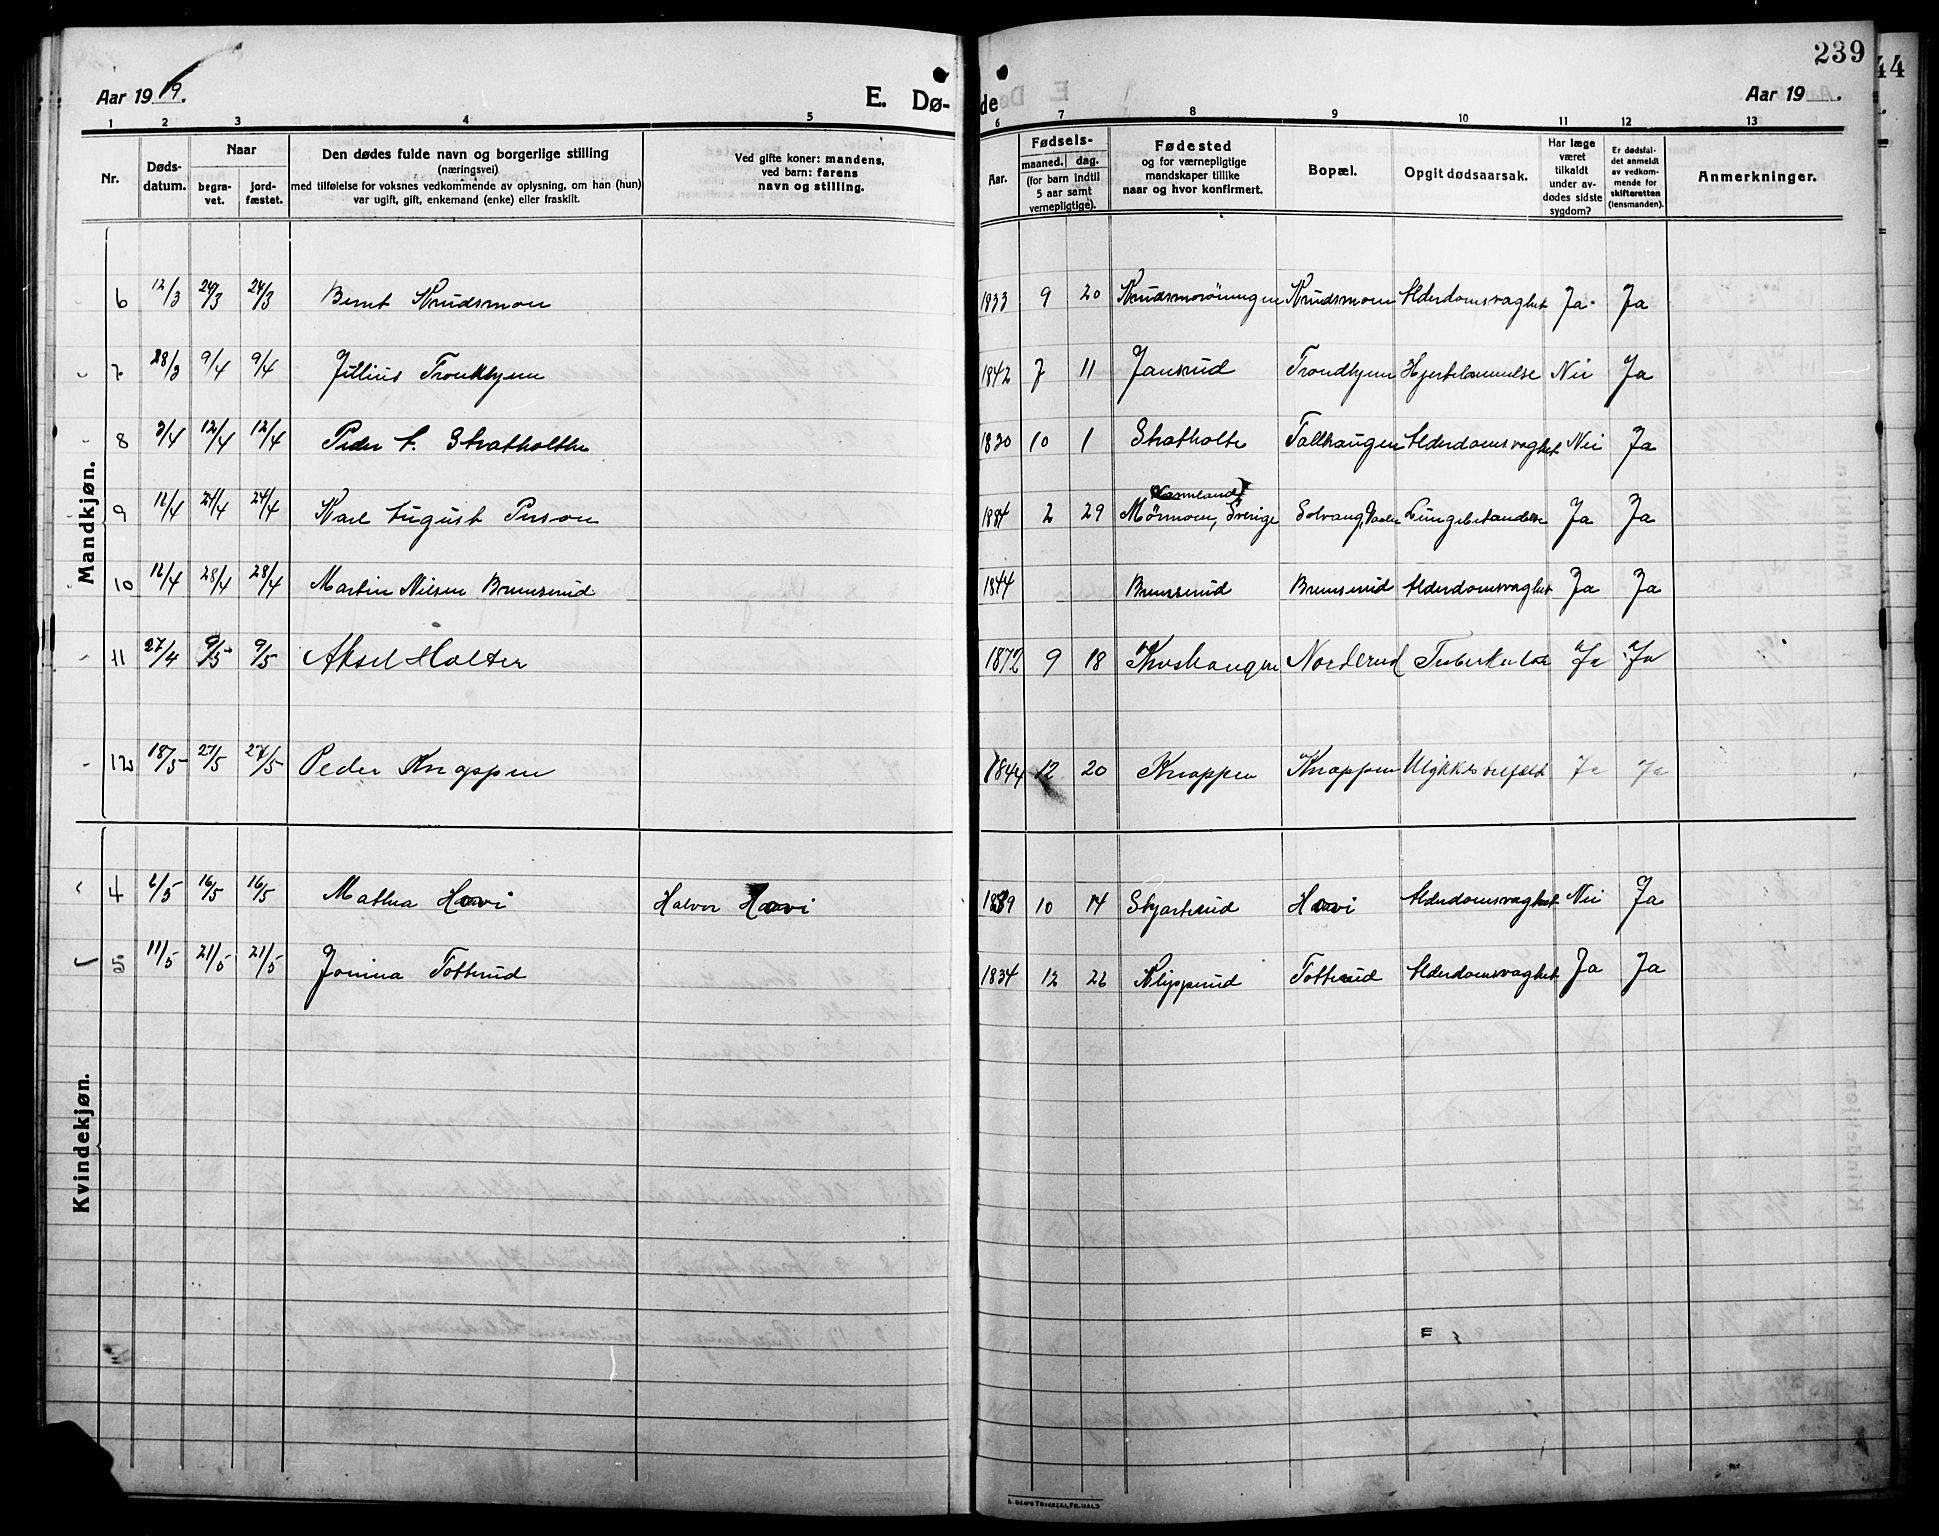 239
44
Aar 1919.
E. Dø-
de
Aar 19   .
1 2 3 4 5 6 7 8 9 10 11 12 13
Nr.
Døds-
datum.
Naar
begra-
vet.
jord-
fæstet.
Den dødes fulde navn og borgerlige stilling
(næringsvei)
med tilføielse for voksnes vedkommende av oplysning, om han (hun)
var ugift, gift, enkemand (enke) eller fraskilt.
Ved gifte koner: mandens,
ved barn: farens
navn og stilling.
Aar.
Fødsels-
maaned. dag.
(for barn indtil
5 aar samt
vernepligtige).
Fødested
og for værnepligtige
mandskaper tillike
naar og hvor konfirmert.
Bopæl.
Opgit dødsaarsak.
Har læge
været
tilkaldt
under av-
dødes sidste
sygdom?
Er dødsfal-
det anmeldt
av vedkom-
mende for
skifteretten
(lensmanden).
Anmerkninger.
Mandkjøn.
6 12/3 24/3 24/3 Bernt Knudsmoen 1833 9 20 Knudsmoen Alderdomsvaghet Ja Ja
7 28/3 9/4 9/4 Jullius Trondbyen 1842 7 11 Jansrud Trondbyen Hjertelammelse Nei Ja
8 3/4 12/4 12/4 Peder A. Skatholtbr 1830 10 1 Skatholte Tollhaugen Alderdomsvaghet Nei Ja
Varmland
9 24/4 24/4 Karl August Person 1884 2 29 Sverige Solvang, Vaaler Lungebetændelse Ja Ja
10 28/4 28/4 Martin Nilsen Brunserud 1844 Brunserud Brunserud Alderdomsvaghet Ja Ja
11 27/4 9/5 9/5 Aksel Holter 1872 9 18 Kvishaugen Norderud Tuberkulose Ja Ja
12 18/5 27/5 27/5 Peder Knappen 1844 12 20 Knappen Knappen Ulykkestilfælde Ja Ja
Kvindekjøn.
4 6/5 16/5 16/5 Mathea Hovi Halvor Hovi 1839 10 14 Skjarterud Hovi Alderdomsvaghet Nei Ja
5 11/5 21/5 21/5 Jonina Totterud 1834 12 26 Klipperud Totterud Alderdomsvaghet Ja Ja